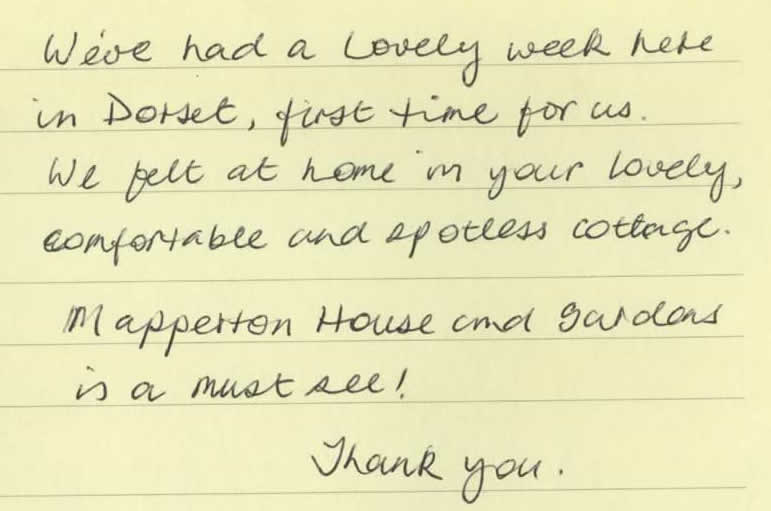 We've had a lovely week here
in Dorset, first time for us.
We felt at home in your lovely,
comfortable and spotless cottage.
Mapperton House and gardens
is a must see!
Thank you.